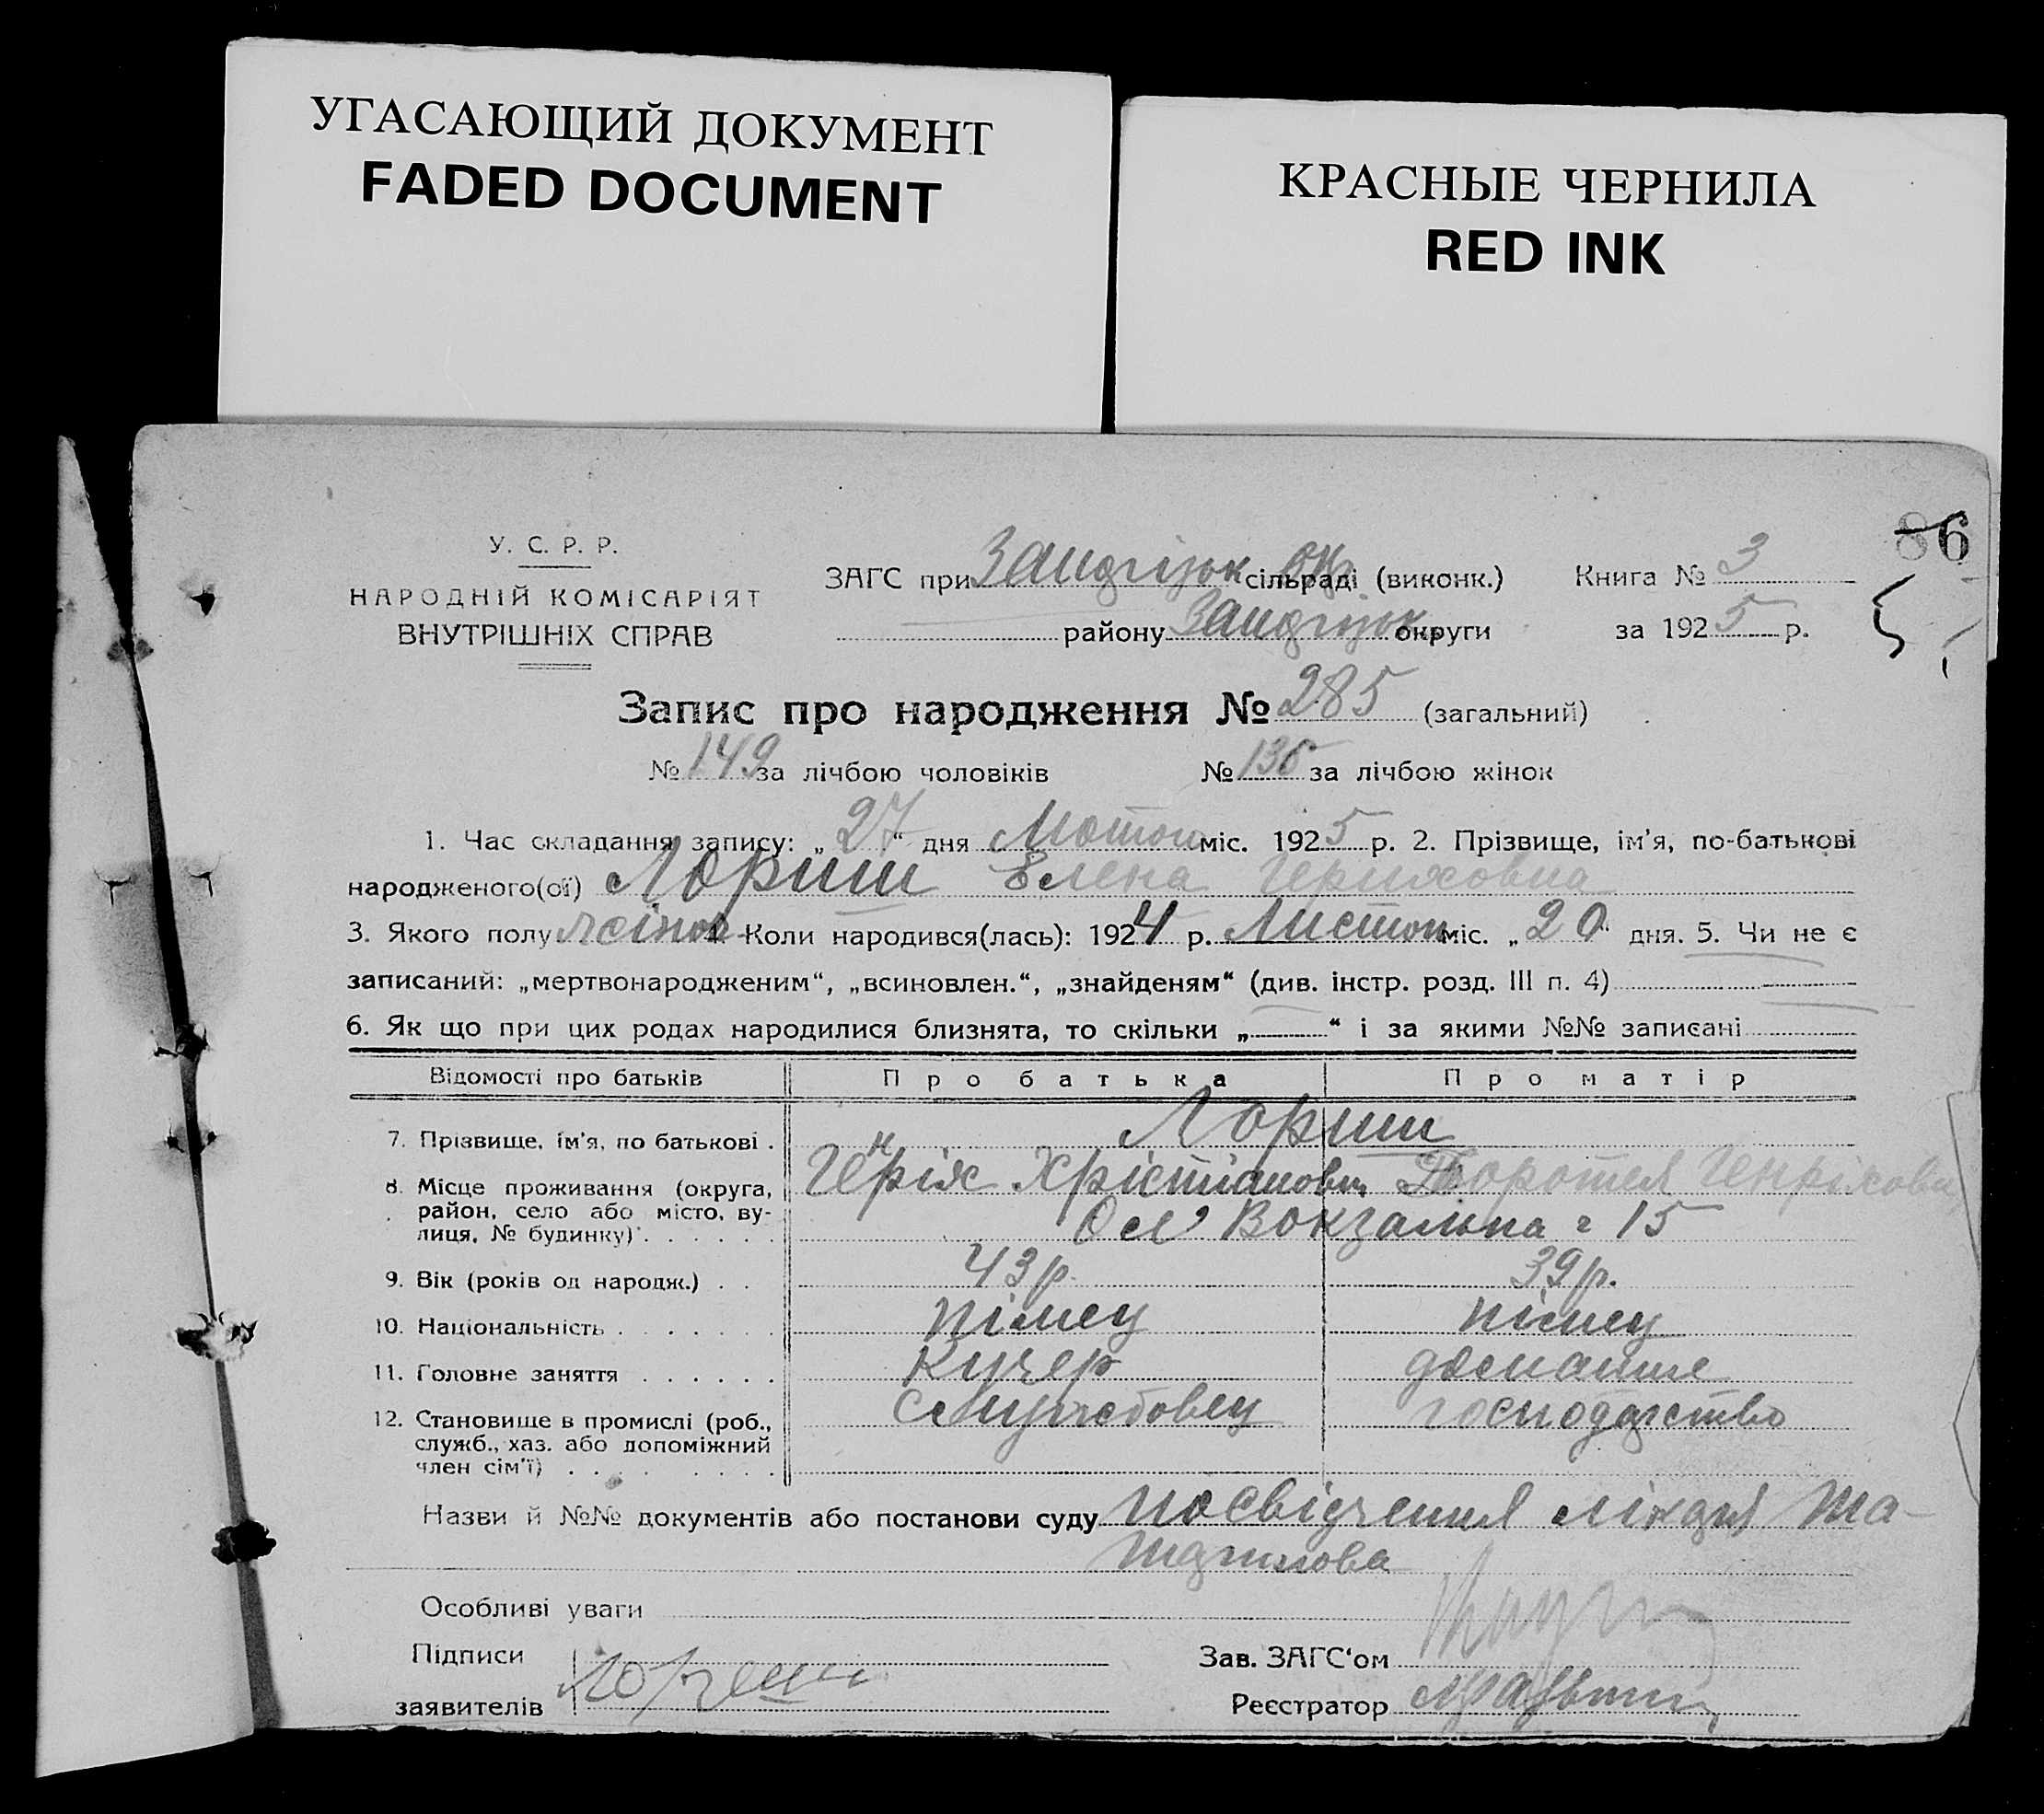 УГАСАЮЩИЙ ДОКУМЕНТ
FADED DOCUMENT
КРАСНЫЕ ЧЕРНИЛА
RED INK
86
У. С. Р. Р.
НАРОДНІЙ КОМІСАРІЯТ
ВНУТРІШНІХ СПРАВ
ЗАГС при сільраді (виконк.) Книга № 3
району округи за 1925 р.
Запис про народження № 285 (загальний)
№ 149 за лічбою чоловіків № 136 за лічбою жінок
1. Час складання запису: „27“ дня Лютого міс. 1925 р. 2. Прізвище, ім'я, по-батькові
народженого(ої) Лориш Елена Геріховна
3. Якого полу жіноч 4 Коли народився(лась): 1924 р. Листоп міс. „20“ дня. 5. Чи не є
записаний: „мертвонародженим“, „всиновлен.“, „знайденям“ (див. інстр. розд. III п. 4)
6. Як що при цих родах народилися близнята, то скільки „ “ і за якими №№ записані
Відомості про батьків Про батька Про матір
7. Прізвище, ім'я, по батькові . Лориш
Генріх Хрістіанович Доротея Генріховн
8. Місце проживання (округа,
район, село або місто, ву-
лиця, № будинку) Вокзальна 15
9. Вік (років од народж.) . . 43 р. 39 р.
10. Національність німец німец
11. Головне заняття кучер домашне
12. Становище в промислі (роб.,
служб., хаз. або допоміжний
член сім'ї) службовец господарство
Назви й №№ документів або постанови суду посвідчення лікаря
Особливі уваги
Підписи
заявителів
Зав. ЗАГС‘ом
Реєстратор